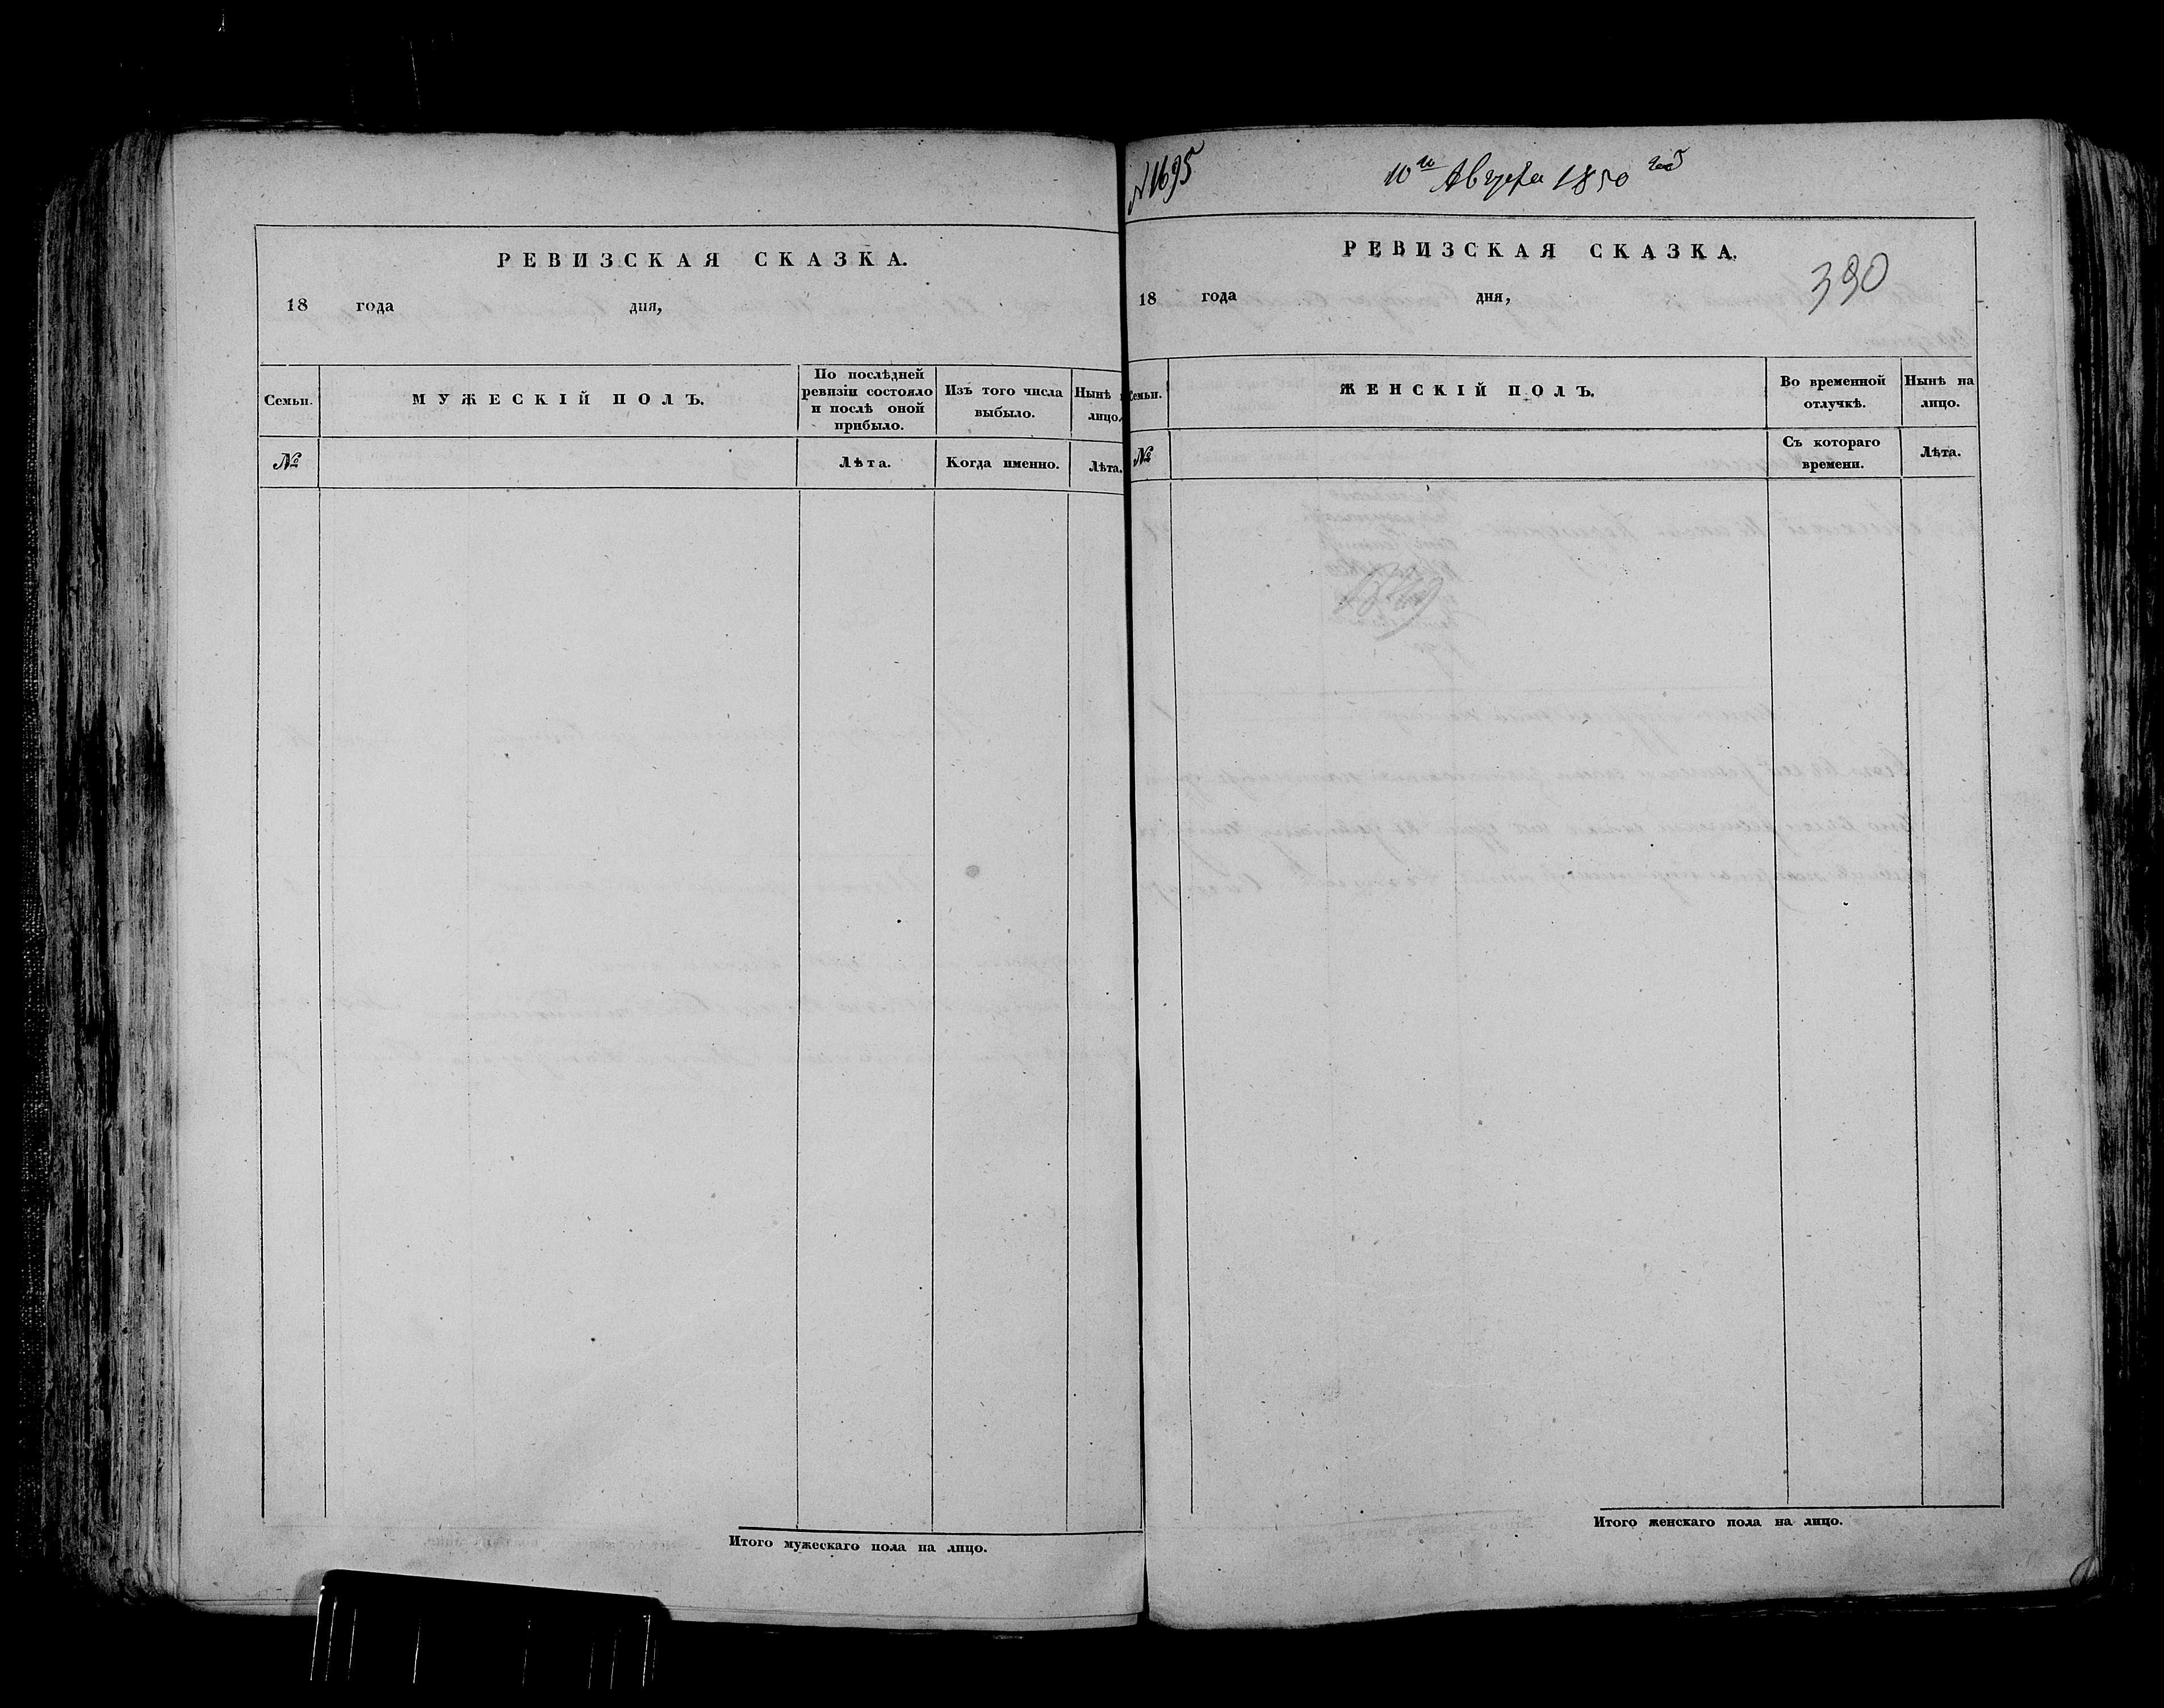 РЕВИЗСКАЯ СКАЗКА.
18 года дня,
Семьи.
МУЖЕСКІЙ ПОЛЪ.
По послѣдней
ревизіи состояло
и послѣ оной
прибыло.
Изъ того числа
выбыло.
Нынѣ
лицо.
№
Лѣта.
Когда именно.
Лѣта.
Итого мужескаго пола на лицо.
№ 1695
10го Августа 1850 года
РЕВИЗСКАЯ СКАЗКА.
390
18 года дня,
Семьи.
ЖЕНСКІЙ ПОЛЪ.
Во временной
отлучкѣ.
Нынѣ на
лицо.
№
Съ котораго
времени.
Лѣта.
Итого женскаго пола на лицо.